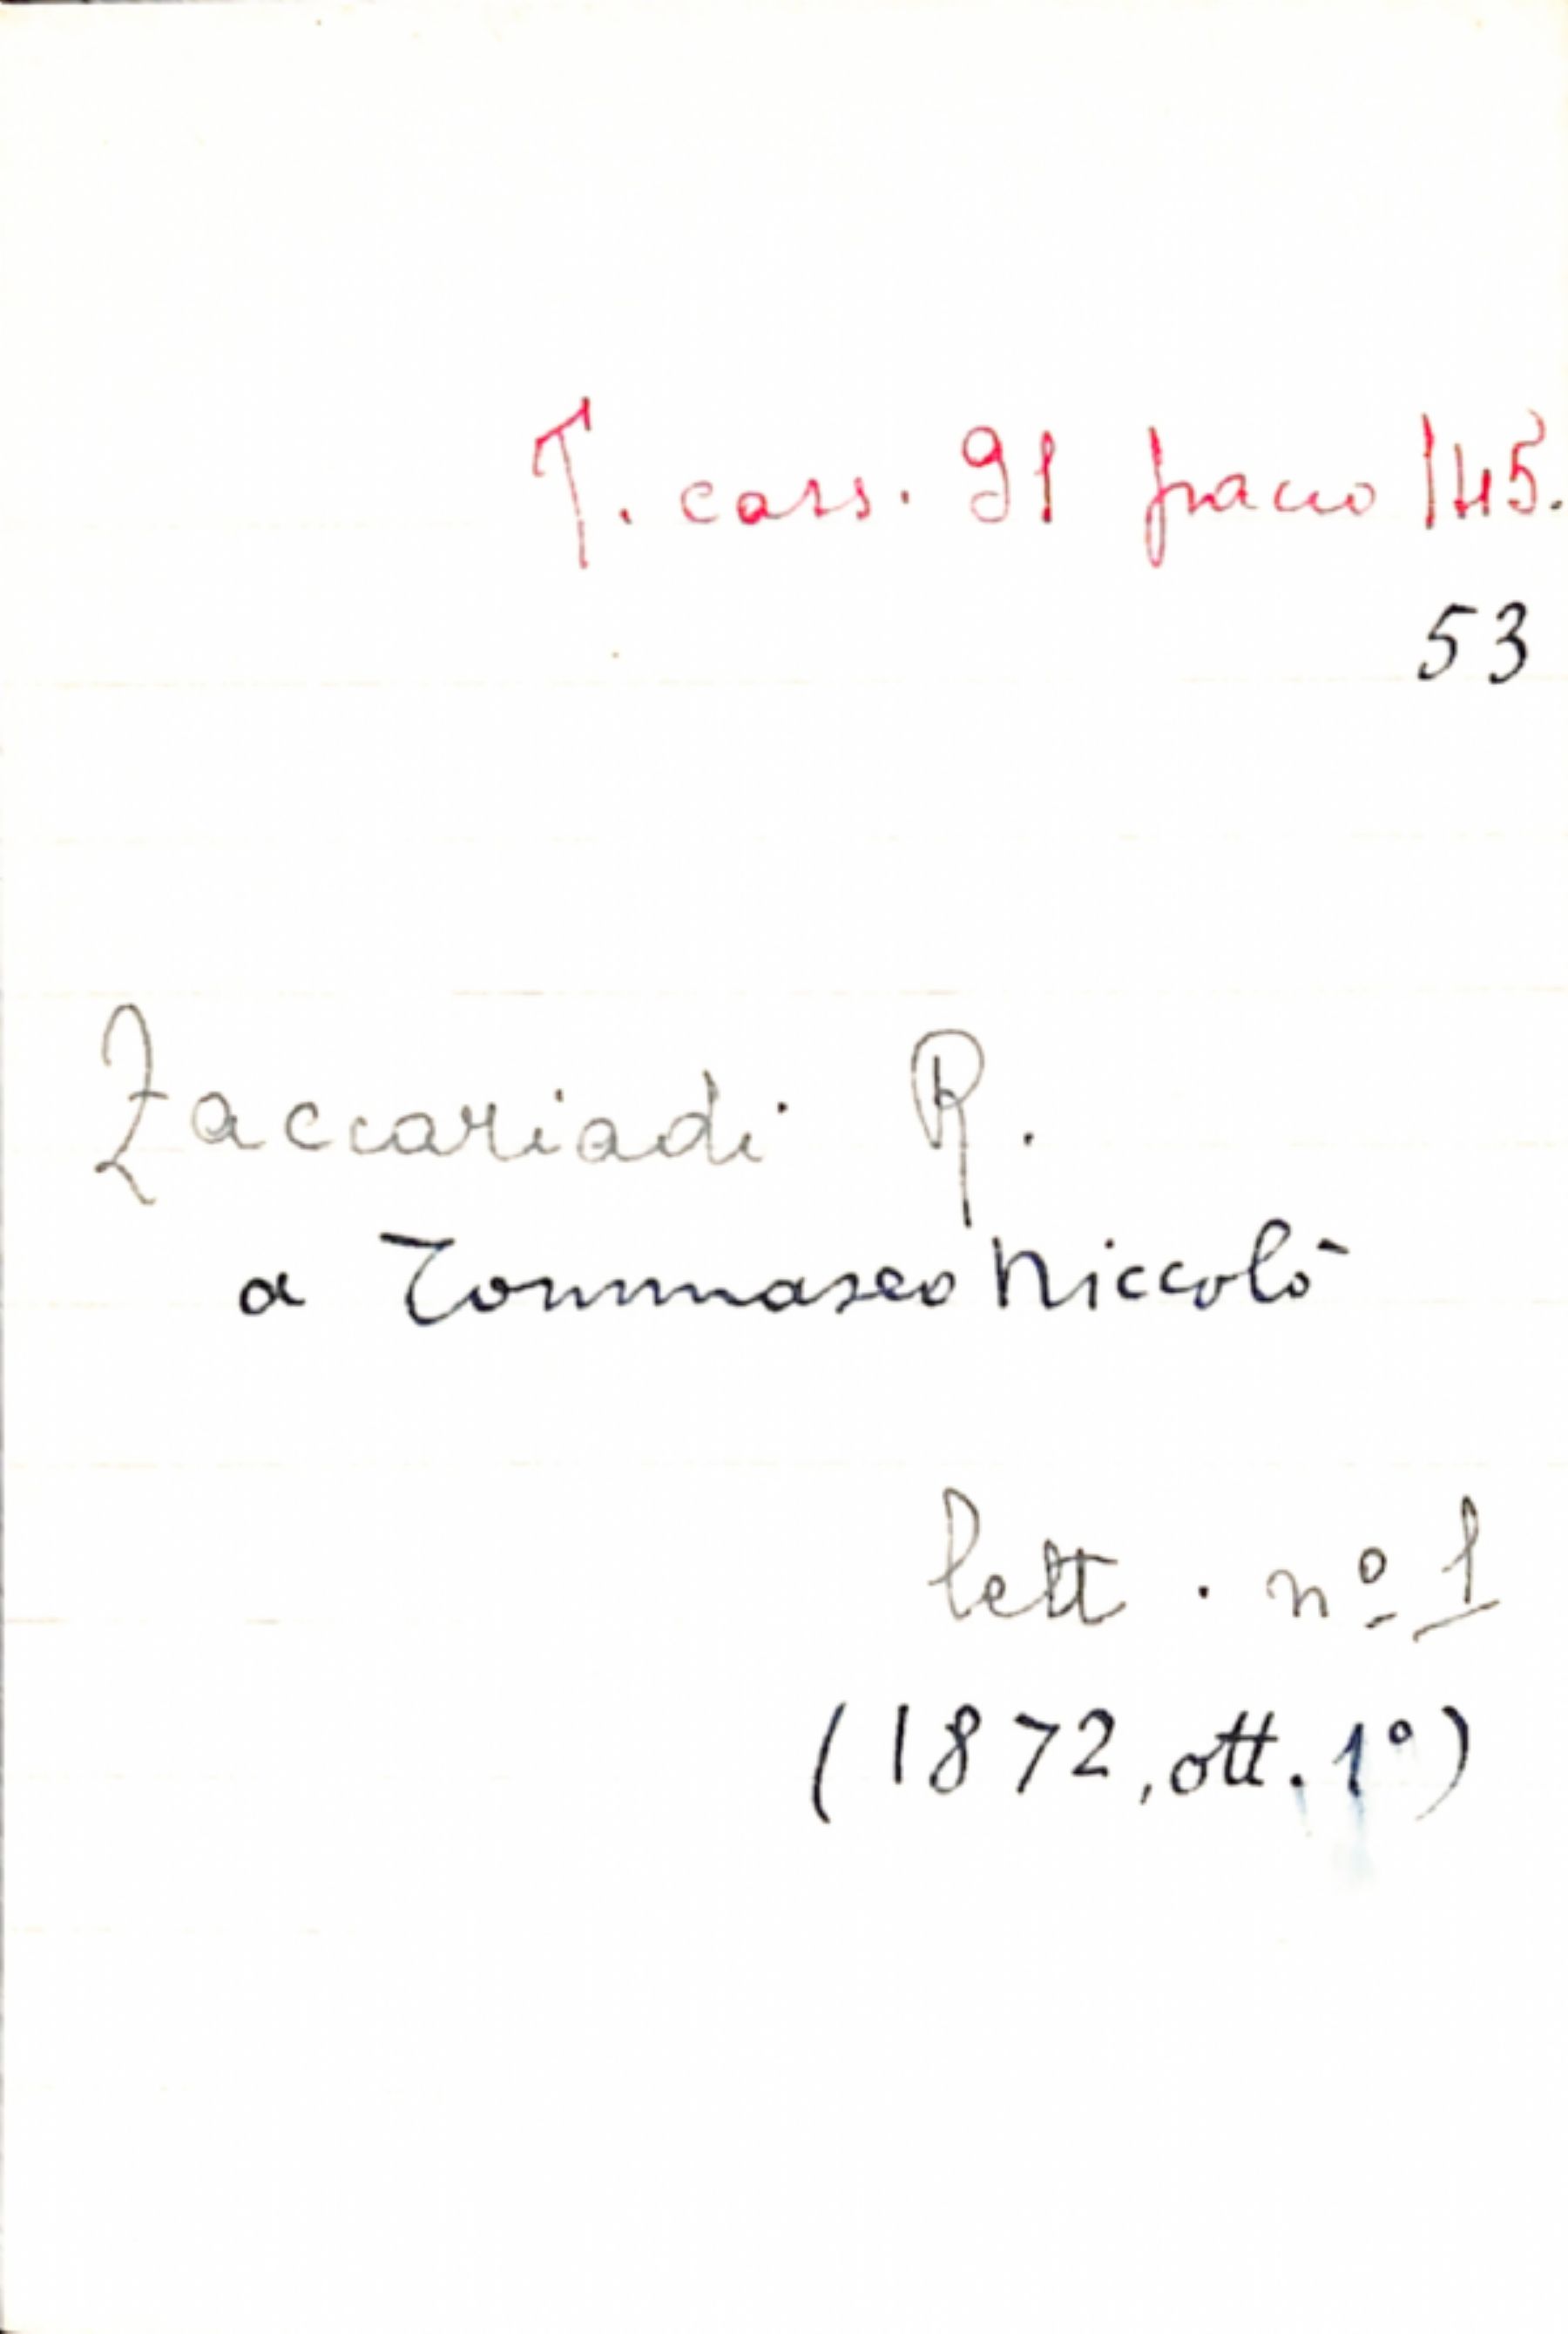 T. cass. 91 pacco 145.
53
Zaccariadi R.
a Tommaseo Niccolò
lett. nº 1
(1872, ott. 1º)